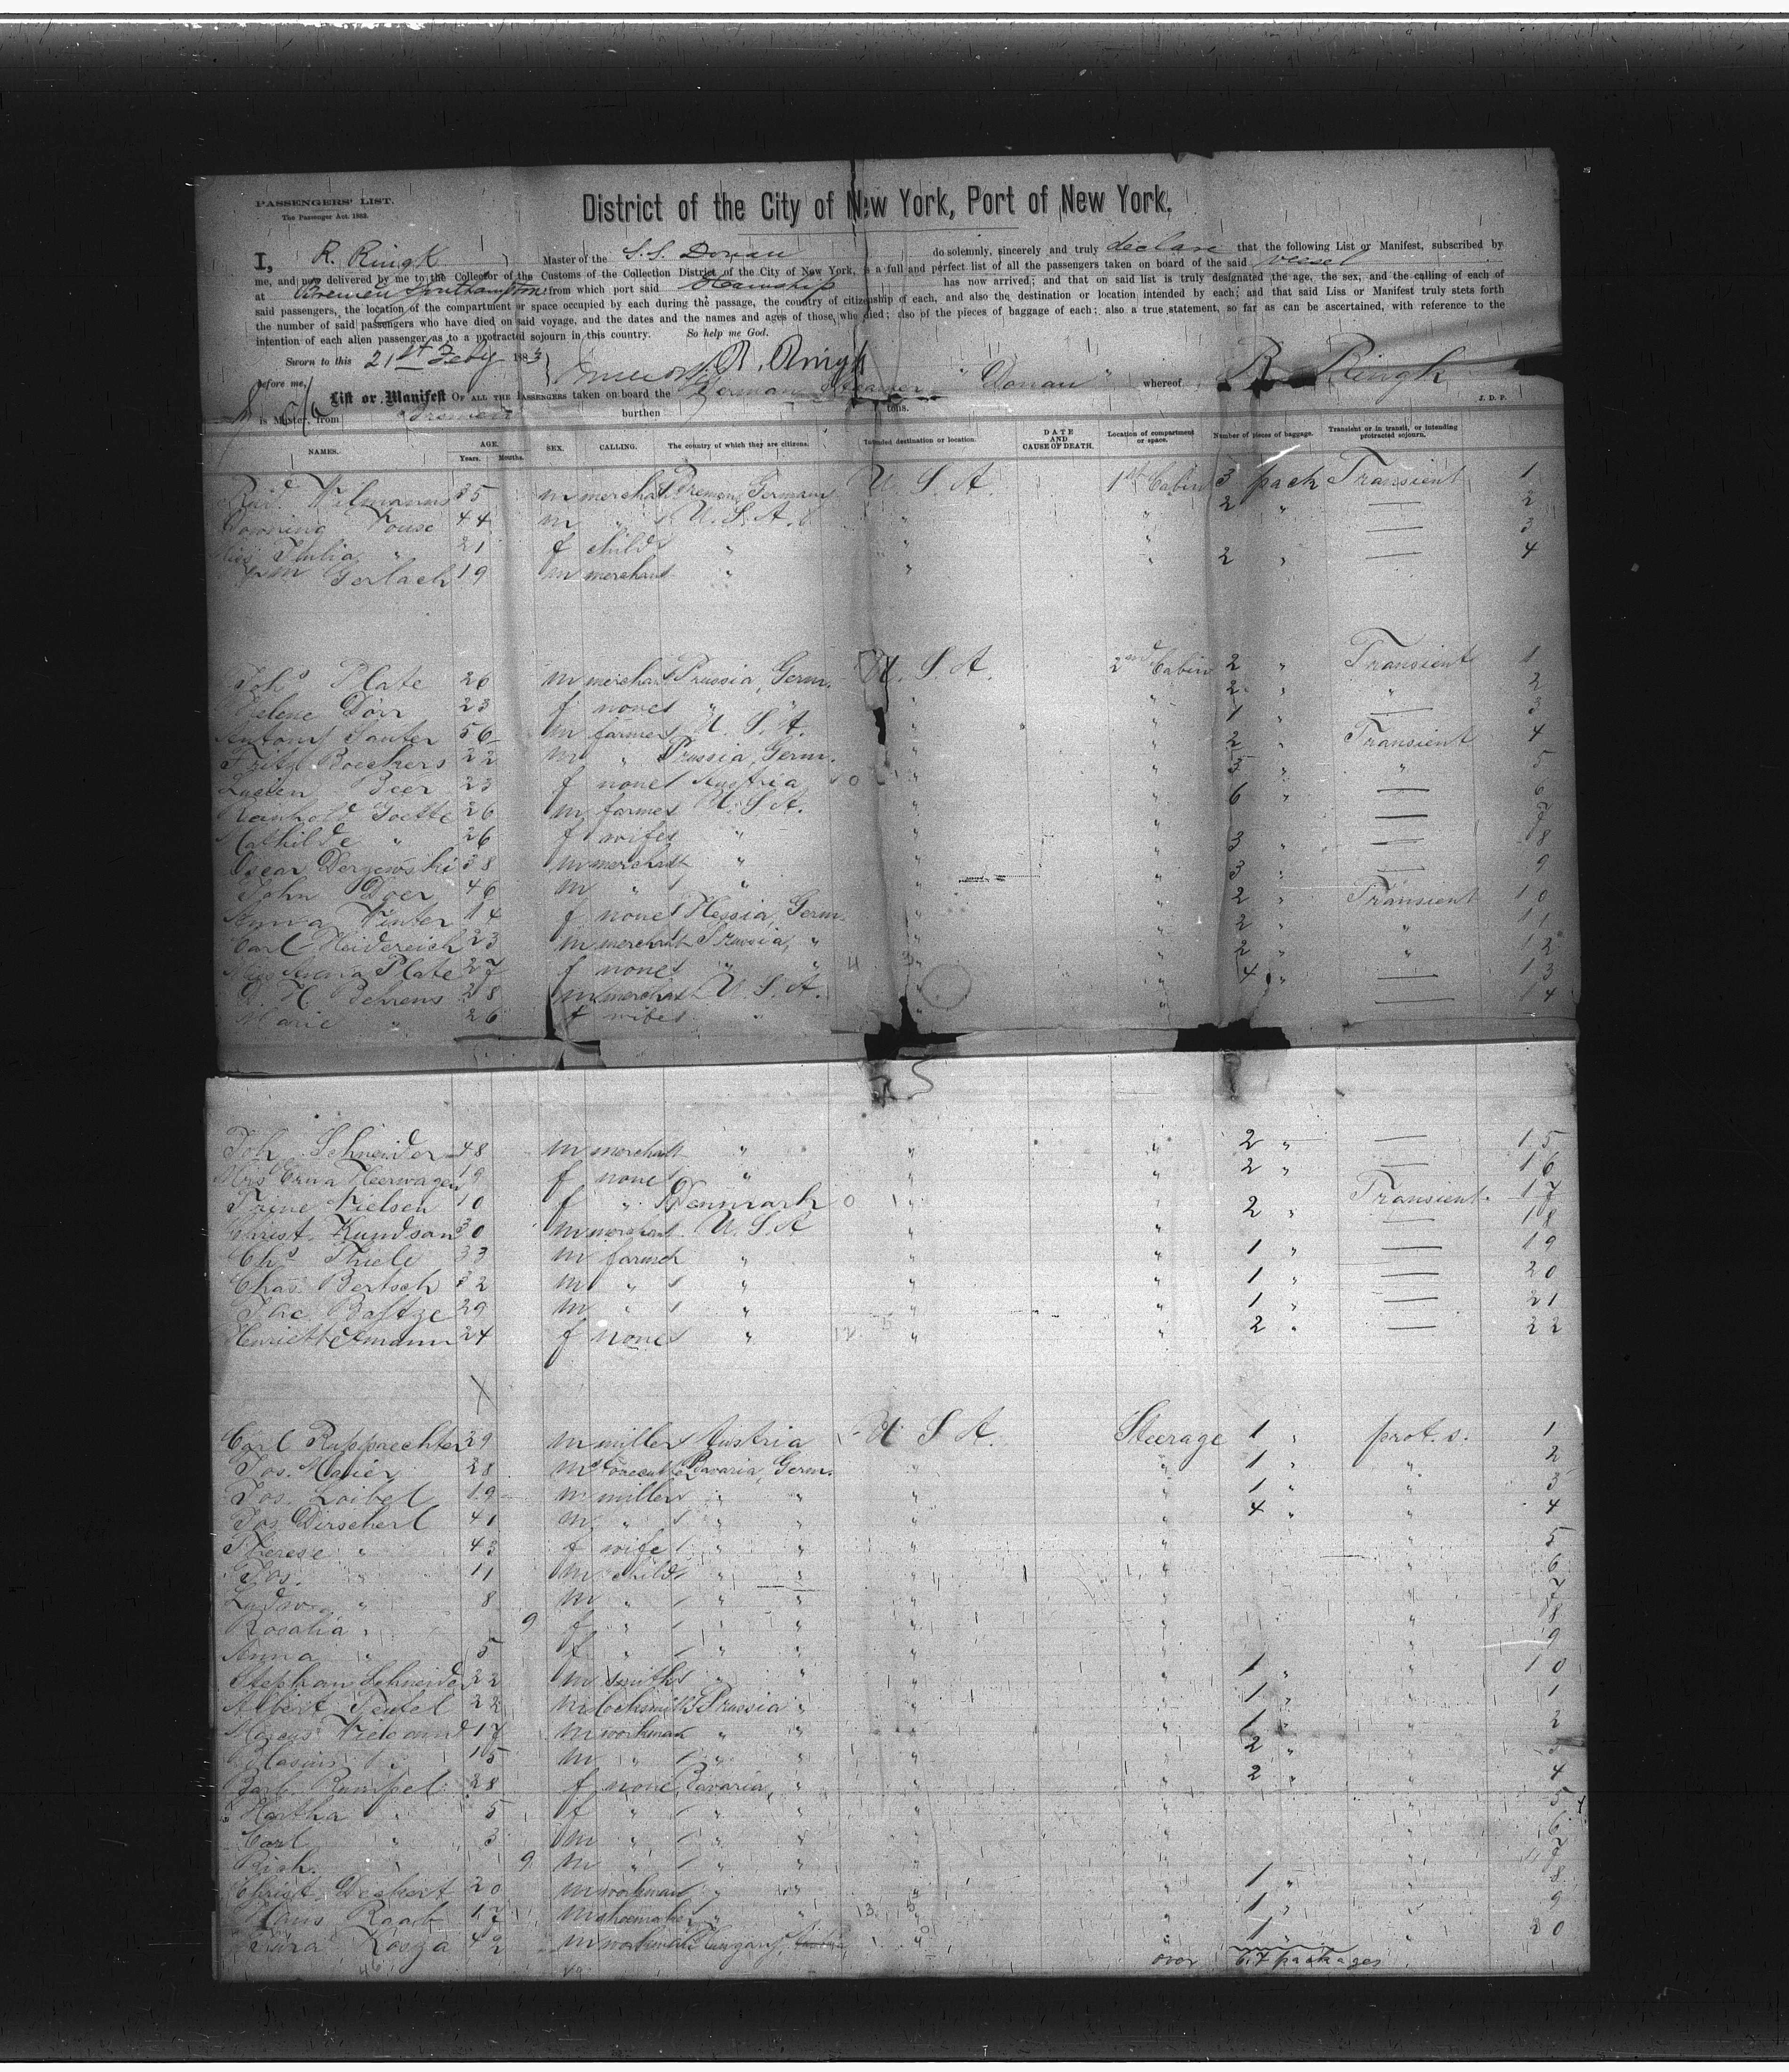 PASSENGERS' LIST.
The Passenger Act. 1882.
District of the City of New York, Port of New York.
I, R. Ringk Master of the S.S. Donau do solemnly, sincerely and truly declare that the following List or Manifest, subscribed by
me, and now delivered by me to the Collector of the Customs of the Collection District of the City of New York, is a full and perfect list of all the passengers taken on board of the said vessel
at Bremen Southampton from which port said Steamship has now arrived; and that on said list is truly designated the age, the sex, and the calling of each of
said passengers, the location of the compartment or space occupied by each during the passage, the country of citizenship of each, and also the destination or location intended by each; and that said Liss or Manifest truly stets forth
the number of said passengers who have died on said voyage, and the dates and the names and ages of those who died; also of the pieces of baggage of each; also a true statement, so far as can be ascertained, with reference to the
intention of each alien passenger as to a protracted sojourn in this country. So help me God.
Sworn to this 21st Feby 1883 R. Ringk
before me,
List or Manifest OF ALL THE PASSENGERS taken on board the German Steamer "Donau" whereof R. Ringk
is Master, from Bremen burthen tons. J. D. P.
NAMES. AGE. Years. Months. SEX. CALLING. The country of which they are citizens. Intended destination or location. DATE AND CAUSE OF DEATH. Location of compartment or space. Number of pieces of baggage. Transient or in transit, or intending protracted sojourn.
Wilmanns 35 m merchant Bremen, Germany U. S. A. 1st Cabin 3 pack Transient 1
House 44 m " U. S. A. " " 2 " — 2
Miss Julia " 21 f child " " " — 3
Gerlach 19 m merchant " " 2 " — 4
Johs Plate 26 m merchant Prussia, Germ. U. S. A. 2nd Cabin 2 " Transient 1
Helene Dörr 23 f none " " " " 2 " " 2
Antony Sauter 56 m farmer U. S. A. " " 1 " — 3
Fritz Boeckers 22 m " Prussia, Germ. " " 2 " Transient 4
Lucien Beer 23 f none Austria " " 3 " " 5
Reinhold Goette 26 m farmer U. S. A. " " 6 " — 6
Mathilde " 26 f wife " " " — 7
Oscar Dergewski 38 m merchant " " " 3 " — 8
John Doer 46 m " " " " 3 " — 9
Anna Winter 14 f none Hessia, Germ. " " 2 " Transient 10
Carl Heidereich 23 m merchant Prussia, " " " 2 " " 11
Miss Anna Plate 27 f none " " " " 2 " " 12
D. H. Behrens 28 m merchant U. S. A. " " 4 " — 13
Marie " 26 f wife " " " — 14
Joh. Schneider 48 m merchant " " " 2 " — 15
Mrs Erna Heerwagen 19 f none " " " 2 " — 16
Trine Nielsen 10 f " Denmark " " Transient 17
Christ. Kundsan 30 m merchant U. S. A " " 2 " — 18
Chs Thiele 33 m farmer " " " 1 " — 19
Chas. Bertsch 32 m " " " " 1 " — 20
29 m " " " " 1 " — 21
Henriette Amann 24 f none " " " 2 " — 22
Carl Rupprechter 29 m miller Austria U. S. A. Steerage 1 " prot. s. 1
Jos. Maier 28 m stonecutter Bavaria, Germ. " " 1 " " 2
Jos. Loibel 19 m miller " " " " 1 " " 3
Jos Dirscherl 41 m " " " " " 4 " " 4
Therese " 43 f wife " " " " " 5
Jos. " 11 m child " " " " " 6
Ludwig " 8 m " " " " " " 7
Rosalia " 9 f " " " " " " 8
Anna " 5 f " " " " " " 9
Stephan Schneider 22 m smith " " " " 1 " " 10
Albert Teufel 22 m locksmith Prussia " " " 1 " " 1
Marcus 17 m workman " " " " 1 " " 2
15 m " " " " " 2 " " 3
Barb. Rumpel 28 f none Bavaria, " " " 2 " " 4
Hertha " 5 f " " " " " " 5
Carl " 3 m " " " " " " 6
Rich. " 9 m " " " " " " 7
Christ. Deckert 20 m workman " " " " 1 " " 8
Hans Raab 17 m shoemaker " " " " 1 " " 9
Kosza 42 m workman Hungary, " " 1 " " 20
over 64 packages